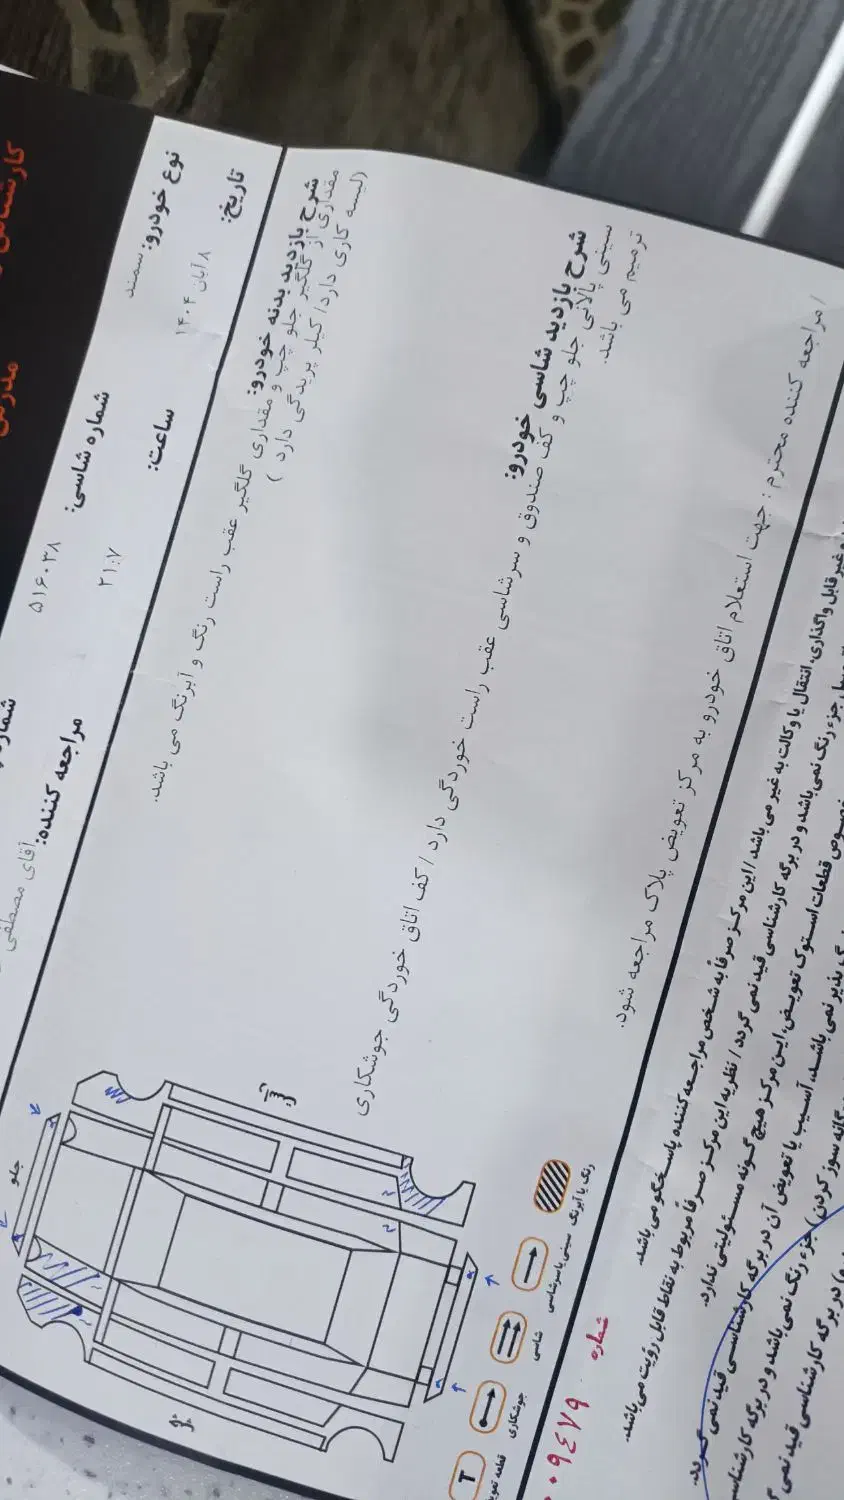 کارشناس
مدرس
نوع خودرو: سمند
شماره شاسی: ۵۱۶۰۳۸
مراجعه کننده: آقای مصطفی
تاریخ: ۸ آبان ۱۴۰۴
ساعت: ۲۱:۷
شرح بازدید بدنه خودرو:
مقداری از گلگیر جلو چپ و مقداری گلگیر عقب راست رنگ و آبرنگ می باشد.
(لیسه کاری دارد/کیلر پریدگی دارد )
شرح بازدید شاسی خودرو:
سینی پالانی جلو چپ و کف صندوق و سرشاسی عقب راست خوردگی دارد /کف اتاق خوردگی جوشکاری
ترمیم می باشد.
/مراجعه کننده محترم : جهت استعلام اتاق خودرو به مرکز تعویض پلاک مراجعه شود.
جلو
رنگ یا آبرنگ
سینی یا سرشاسی
شاسی
جوشکاری
T
قطعه
شماره
۰۰۹۴۷۹
غیر قابل واگذاری، انتقال یا وکالت به غیر می باشد / این مرکز صرفاً به شخص مراجعه کننده پاسخگو می باشد.
جزء رنگ نمی باشد و در برگه کارشناسی قید نمی گردد / نظریه این مرکز صرفاً مربوط به نقاط قابل رؤیت می باشد.
قطعات استوک تعویض، این مرکز هیچ گونه مسئولیتی ندارد.
پذیر نمی باشد، آسیب یا تعویض آن در برگه کارشناسی قید نمی گردد.
سوز کردن) جزء رنگ نمی باشد و در برگه کارشناسی
در برگه کارشناسی قید نمی